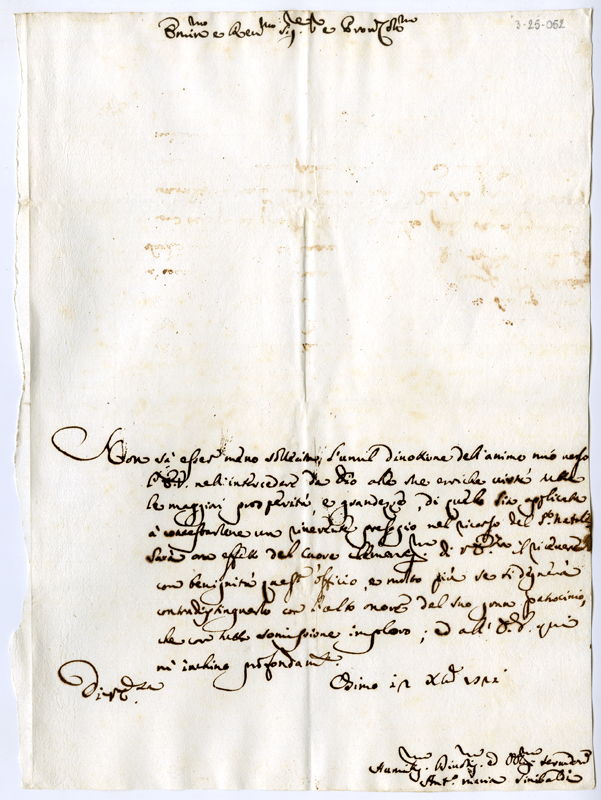 3-25-052
Emin.mo e Rev.mo Sig.re e Pron Col.mo
Non sà esser meno sollecita l'umil divotione dell'animo mio verso
l'E.V. nell'intercedere da Dio alle sue eroiche virtù tutte
le maggiori prosperità, e grandezze, di quello sia applicata
à contestarlene un riverente presagio nel ricorso del S.to Natale
Sarà un effetto del cuore di V.E. il ricevere
con benignità quest'officio, e molto più se si degnerà
contradistinguerlo con l'alto onore del suo patrocinio,
che con tutta sommissione imploro; ed all'E.V. qui
mi inchino profondam.te
Di V.E. Osimo
Humil.mo Divot.mo ed Obl.mo Servitore
Ant.o Maria Sinibaldi